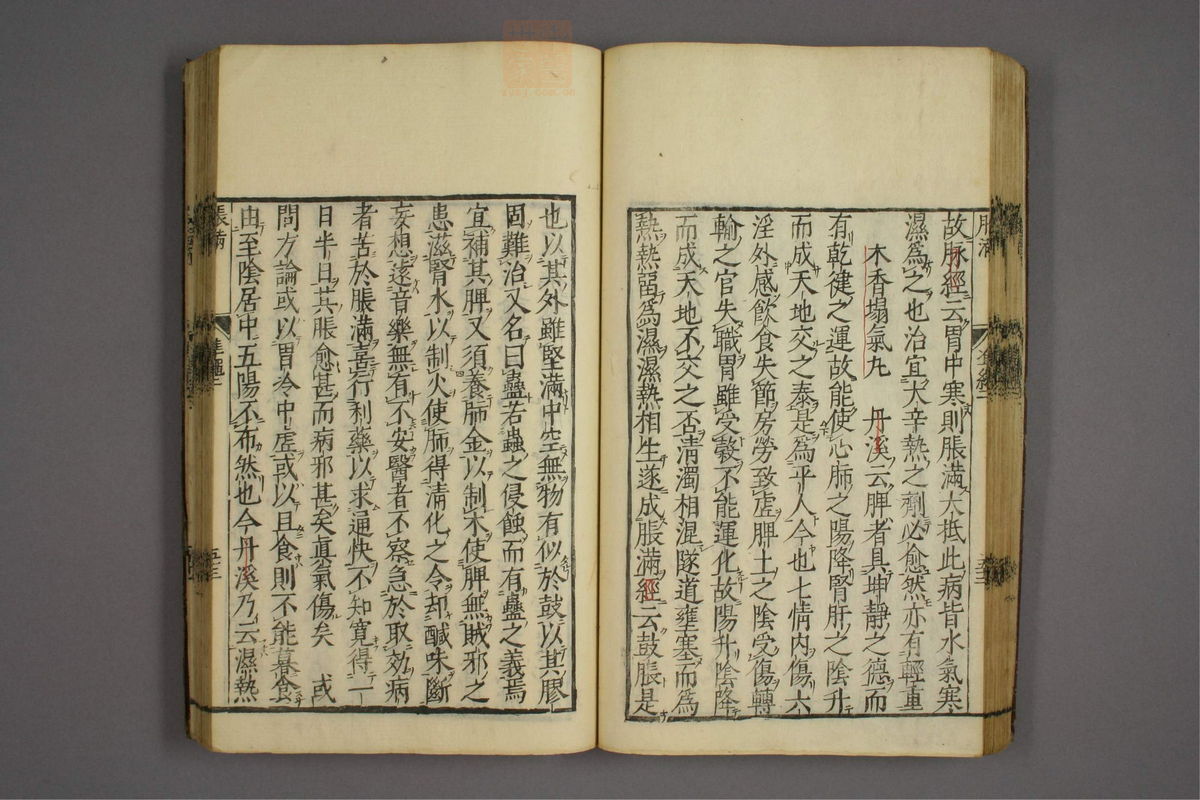 故脉經云胃中寒則脹滿大抵此病皆水氣寒
濕爲之也治宜大辛熱之劑必愈然亦有輕重
木香塌氣丸　丹溪云脾者具坤靜之德而
有乾健之運故能使心肺之陽降腎肝之陰升
而成天地交之泰是爲平人今也七情内傷六
淫外感飲食失節房勞致虚脾土之陰受傷轉
輸之官失職胃雖受穀不能運化故陽升陰降
而成天地不交之否清濁相混隧道壅塞而爲
熱熱畱爲濕濕熱相生遂成脹滿經云鼓脹是
也以其外雖堅滿中空無物有似於鼓以其膠
固難治又名曰蠱若蟲之侵蝕而有蠱之義焉
宜補其脾又須養肺金以制木使脾無賊邪之
患滋腎水以制火使肺得清化之令却鹹味斷
妄想遠音樂無有不安醫者不察急於取効病
者苦於脹滿喜行利藥以求通快不知寛得一
日半日其脹愈甚而病邪甚矣眞氣傷矣　或
問方論或以胃冷中虚或以旦食則不能暮食
由至陰居中五陽不布然也今丹溪乃云濕熱
脹滿